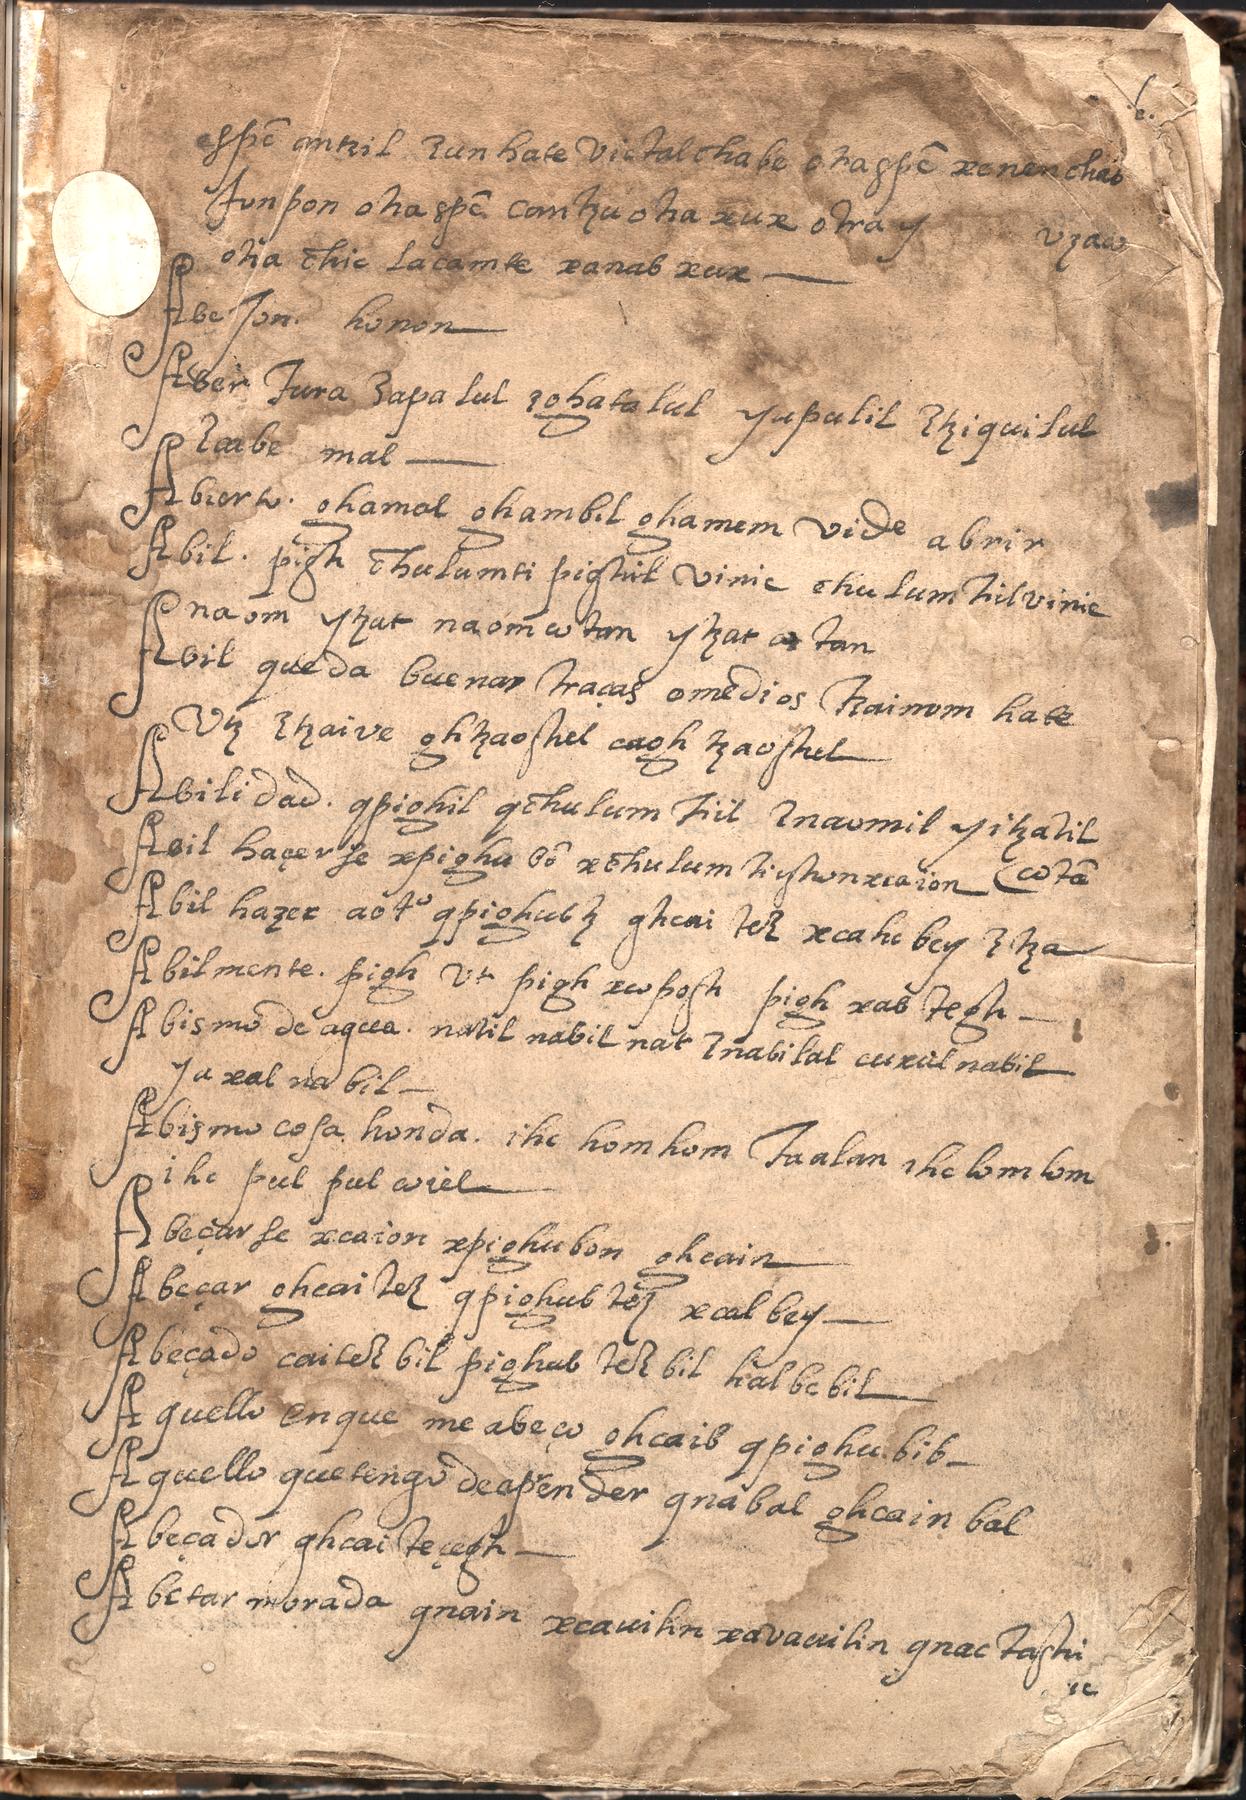 espē antzil zun hate victalchabe otra espē xenenchab
Junpon otra espē cantzu otra xux otra y
otra chic lacamte xanab xux
Abejon. honon
Aber Jura zapalul zghatalul yupulil ztziquilul
zcabe mal
Abierto. ghamal ghambil ghamem vide abrir
Abil. pigh chulumti pighil vinic chulumtil vinic
naom ytzat naom cotan ytzat cotan
Abil que da buenas traças omedios tzainom hate
Utz ztzaive ghtzaoghel cagh tzaoghel
Abilidad. qpighil qchulumtil znaomil yitzatil
Abil haçerse xpighubō xchulumtighonxcaion cotā
Abil hazer aotº qpighubtz ghcaitez xcahcbey ztza
Abilmente. pigh ut pigh xcopogh pigh xab tegh
Abismo de agua. natil nabil nat znabilal cuxul nabil
yaxal nabil
Abismo cosa honda. ihc homhom Jaalan ihc lomlom
ihc pul pul coiel
Abeçarse xcaion xpighubon ghcain
Abeçar ghcaitez qpighubtez xcalbey
Abeçado caitezbil pighubtezbil halbebil
Aquello enque me abeço ghcaib qpighu.bib
Aquello quetengo deaprender qnabal ghcain bal
Abeçador ghcaiteçegh
Abetar morada qnain xcauilin xavauilin qnactaghi